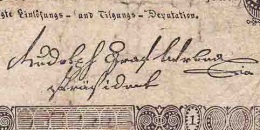 gte Einlösungs- und Tilgungs-Deputation.
Rudolph Graf Wrbna
Präsident
1